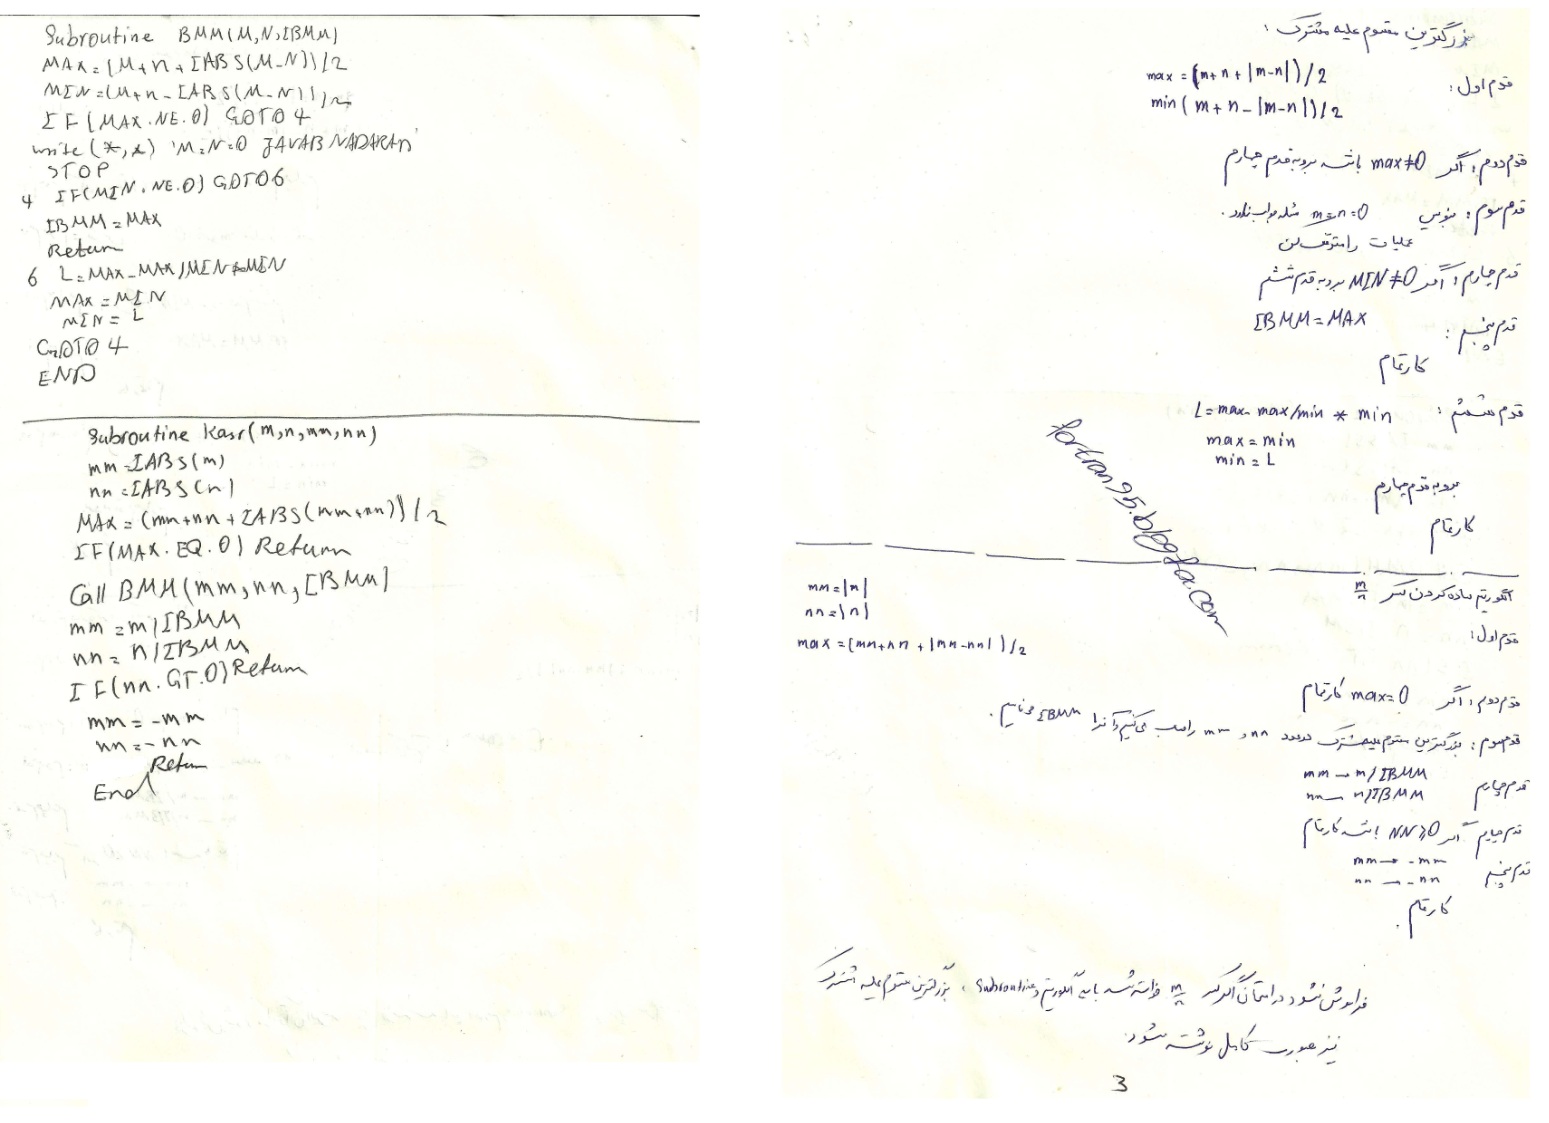 Subroutine BMM(M,N,IBMM)
MAX=(M+n+IABS(M-N))/2
MIN=(M+n-IABS(M-N))/2
IF(MAX.NE.0) GOTO 4
write(*,*) 'M=N=0 JAVAB NADARAD'
STOP
4 IF(MIN.NE.0) GOTO 6
IBMM=MAX
Return
6 L=MAX-MAX/MIN*MIN
MAX=MIN
MIN=L
GOTO 4
END
Subroutine Kasr(m,n,mm,nn)
mm=IABS(m)
nn=IABS(n)
MAX=(mm+nn+IABS(mm+nn))/2
IF(MAX.EQ.0) Return
Call BMM(mm,nn,IBMM)
mm=m/IBMM
nn=n/IBMM
IF(nn.GT.0)Return
mm=-mm
nn=-nn
Return
End
بزرگترین مقسوم علیه مشترک:
قدم اول: max=(m+n+|m-n|)/2
min(m+n-|m-n|)/2
قدم دوم: اگر max≠0 باشد برو به قدم چهارم
قدم سوم: بنویس m=n=0 مسئله جواب ندارد.
عملیات را متوقف کن
قدم چهارم: اگر MIN≠0 برو به قدم ششم
قدم پنجم: IBMM=MAX
کار تمام
قدم ششم: L=max-max/min*min
max=min
min=L
برو به قدم چهارم
کار تمام
fortran95.blogfa.com
الگوریتم ساده کردن کسر m/n
قدم اول: mm=|m|
nn=|n|
max=(mm+nn+|mm-nn|)/2
قدم دوم: اگر max=0 کار تمام
قدم سوم: بزرگترین مقسوم علیه مشترک دو عدد nn و mm را حساب می کنیم و آنرا IBMM می نامیم.
قدم چهارم mm→m/IBMM
nn→n/IBMM
قدم چهارم اگر NN≥0 باشد کار تمام
قدم پنجم mm→-mm
nn→-nn
کار تمام.
فراموش نشود در امتحان اگر کسر m/n خواسته شد باید الگوریتم و Subroutine، بزرگترین مقسوم علیه مشترک
نیز بصورت کامل نوشته شود.
3